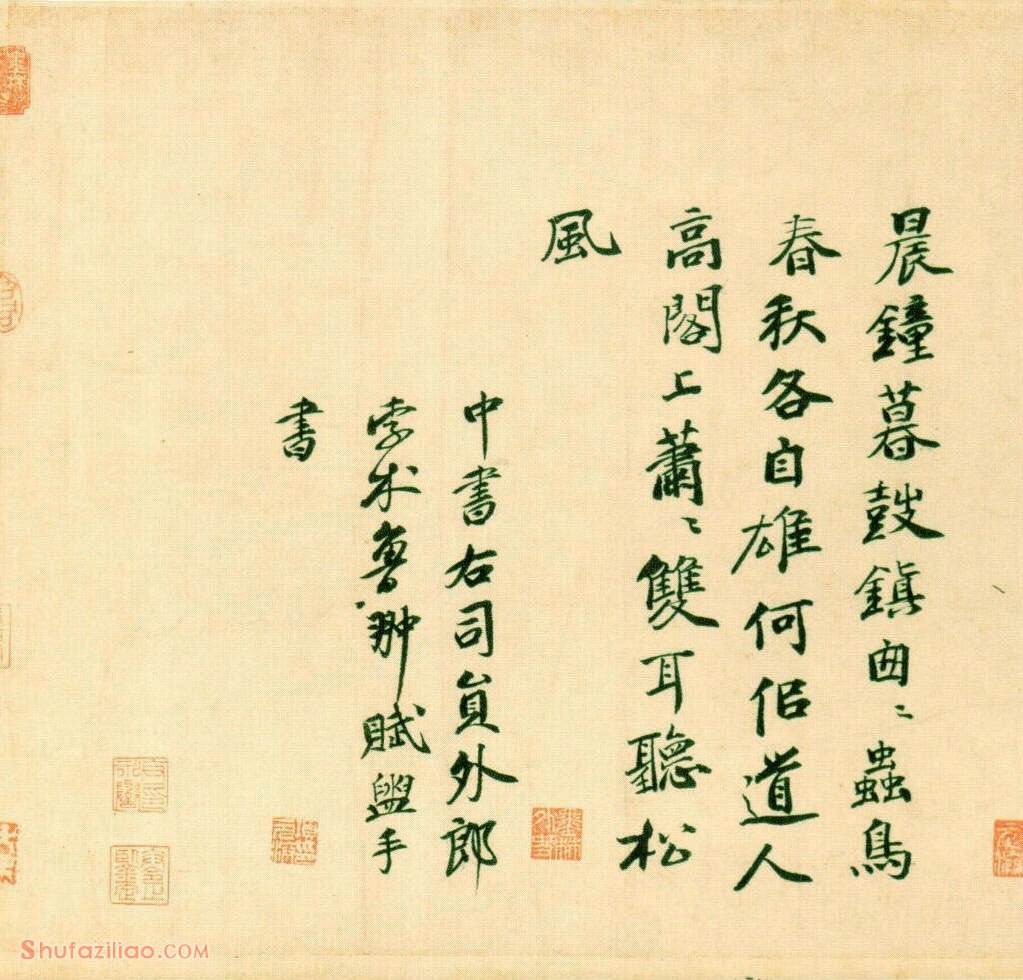 晨鐘暮鼓鎮匆〻蟲鳥
春秋各自雄何侣道人
高閣上蕭〻雙耳聽松
風
中書右司員外郎
孛术魯翀賦盥手
書
Shufaziliao.COM